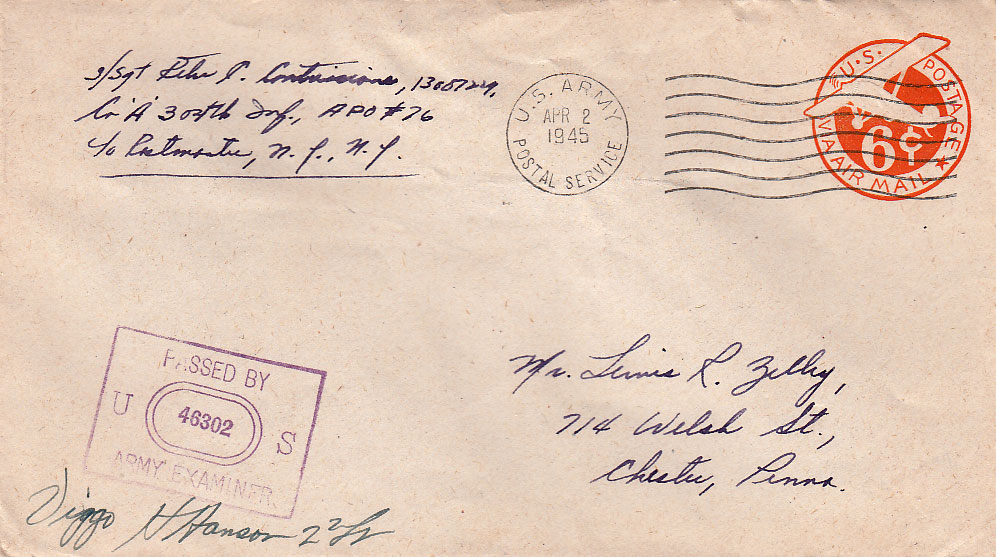 S/Sgt P. 
Co "A" 304th Inf., APO #76
c/o Postmaster, N.Y., N.Y.
U.S. ARMY
APR 2
1945
POSTAL SERVICE
U.S. POSTAGE
6¢
VIA AIR MAIL
Mr. Lewis R. Zelley,
714 Welsh St.,
Chester, Penna.
PASSED BY
U 46302 S
ARMY EXAMINER
Viggo H Hanson 2nd Lt